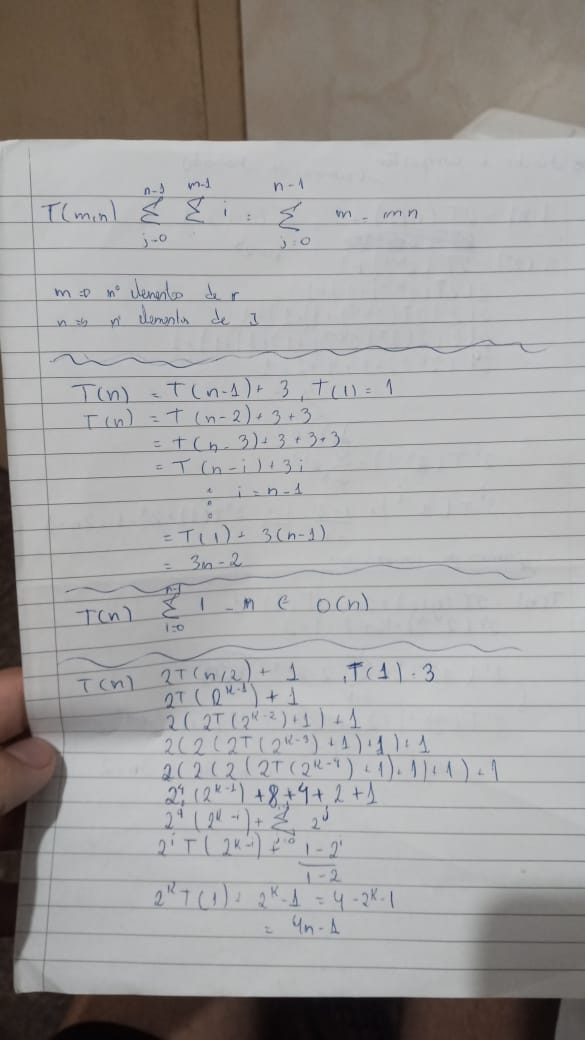 n-1 m-1 n-1
T(m,n) Σ Σ i = Σ m = mn
j=0 j=0
m => nº elementos de r
n => nº elementos de s
T(n) = T(n-1) + 3, T(1) = 1
T(n) = T(n-2) + 3 + 3
= T(n-3) + 3 + 3 + 3
= T(n-i) + 3i
⋮ i = n-1
= T(1) + 3(n-1)
= 3n-2
n-1
T(n) Σ 1 = n ∈ O(n)
i=0
T(n) 2T(n/2) + 1 , T(1) = 3
2T(2^{k-1}) + 1
2(2T(2^{k-2}) + 1) + 1
2(2(2T(2^{k-3}) + 1) + 1) + 1
2(2(2(2T(2^{k-4}) + 1) + 1) + 1) + 1
2^4 (2^{k-1}) + 8 + 4 + 2 + 1
2^4 (2^{k-i}) + Σ 2^j
2^i T(2^{k-i}) + (1-2^i)/(1-2)
2^k T(1) + 2^k - 1 = 4 - 2^k - 1
= 4n - 1